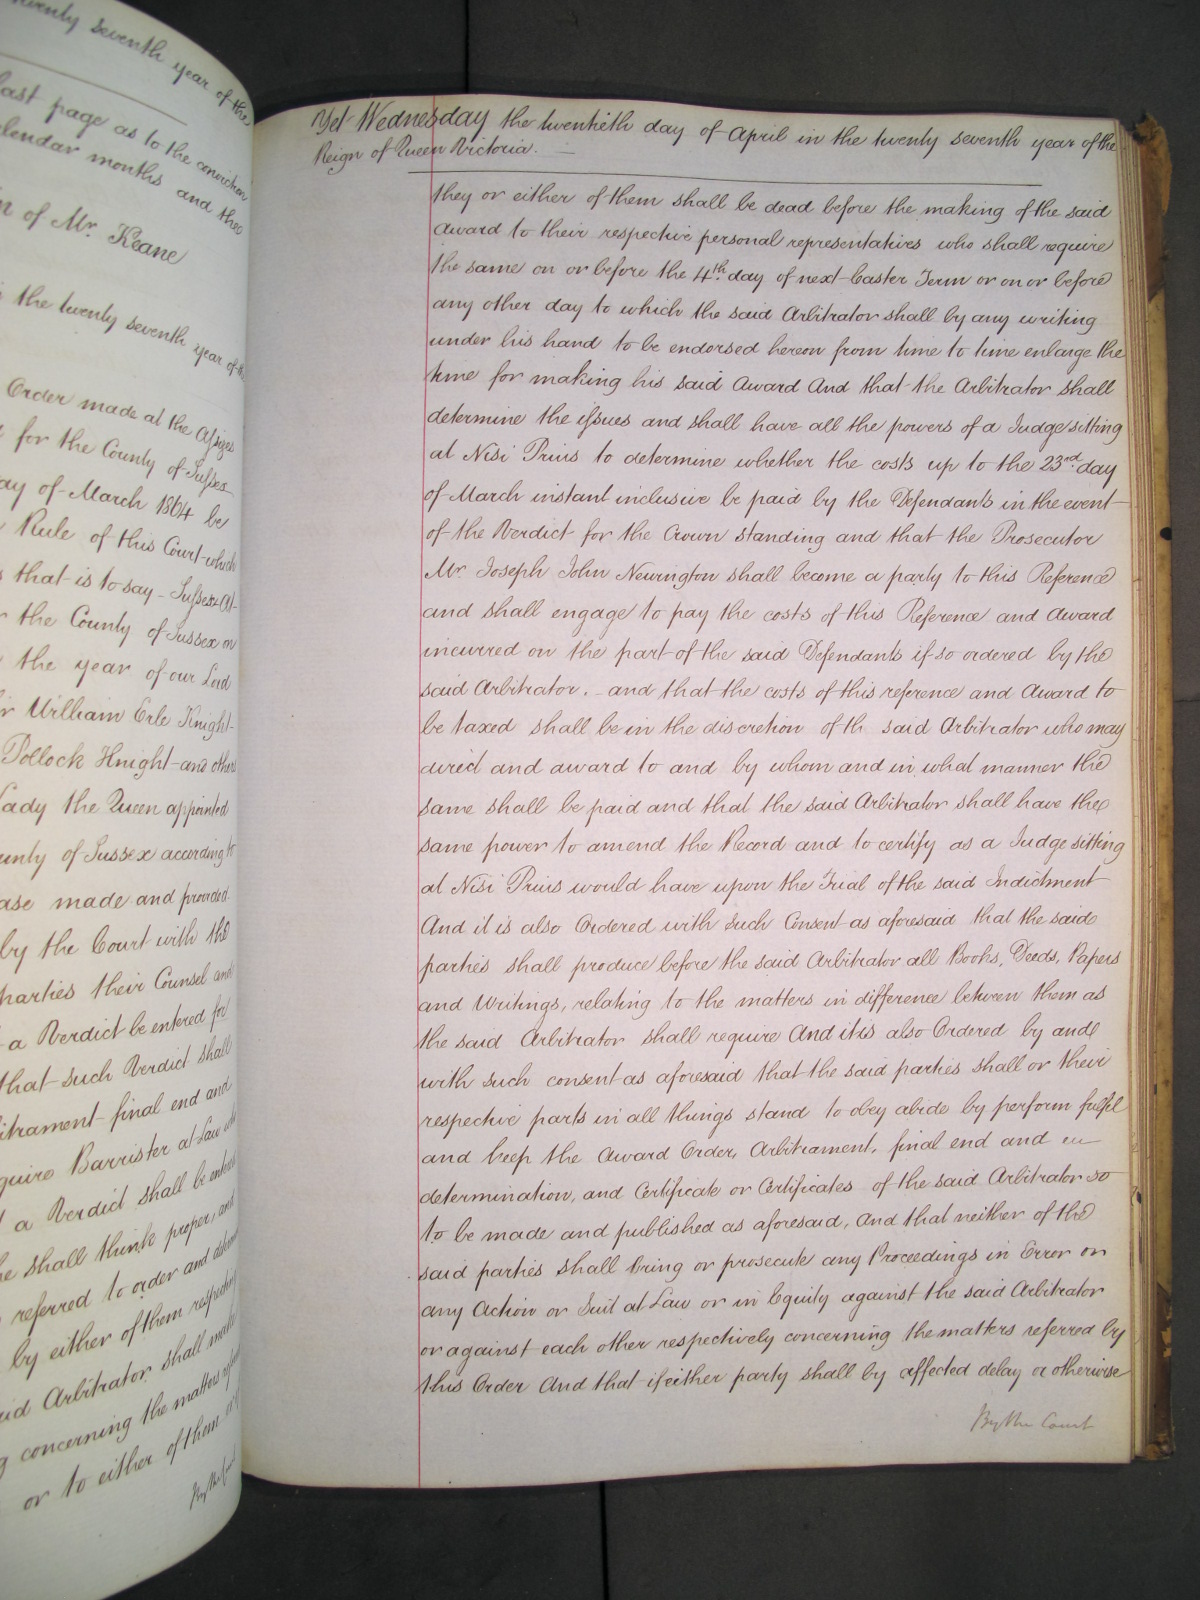 twenty seventh year of the
last page as to the conviction
calendar months and the
of Mr. Keane
the twenty seventh year of the
Order made at the Assizes
for the County of Sussex
day of March 1864 be
Rule of this Court which
that is to say - Sussex At
the County of Sussex on
the year of our Lord
William Erle Knight
Pollock Knight and others
Lady the Queen appointed
County of Sussex according to
case made and provided
by the Court with the
parties their Counsel and
a Verdict be entered for
that such Verdict shall
arbitrament final end and
Esquire Barrister at Law
a Verdict shall be entered
he shall think proper, and
referred to order and
by either of them respecting
said Arbitrator shall make
concerning the matters
or to either of them
By the Court
Yet Wednesday the twentieth day of April in the twenty seventh year of the
Reign of Queen Victoria.
they or either of them shall be dead before the making of the said
award to their respective personal representatives who shall require
the same on or before the 4th. day of next Easter Term or on or before
any other day to which the said Arbitrator shall by any writing
under his hand to be endorsed hereon from time to time enlarge the
time for making his said Award And that the Arbitrator shall
determine the issues and shall have all the powers of a Judge sitting
at Nisi Prius to determine whether the costs up to the 23rd. day
of March instant inclusive be paid by the Defendants in the event
of the Verdict for the Crown standing and that the Prosecutor
Mr. Joseph John Newington shall become a party to this Reference
and shall engage to pay the costs of this Reference and Award
incurred on the part of the said Defendants if so ordered by the
said Arbitrator. - and that the costs of this reference and Award to
be taxed shall be in the discretion of th said Arbitrator who may
direct and award to and by whom and in what manner the
same shall be paid and that the said Arbitrator shall have the
same power to amend the Record and to certify as a Judge sitting
at Nisi Prius would have upon the Trial of the said Indictment
And it is also Ordered with such Consent as aforesaid that the said
parties shall produce before the said Arbitrator all Books, Deeds, Papers
and Writings, relating to the matters in difference between them as
the said Arbitrator shall require And it is also Ordered by and
with such consent as aforesaid that the said parties shall or their
respective parts in all things stand to obey abide by perform fulfil
and keep the Award Order, Arbitrament, final end and
determination, and Certificate or Certificates of the said Arbitrator so
to be made and published as aforesaid, And that neither of the
said parties shall bring or prosecute any Proceedings in Error or
any Action or Suit at Law or in Equity against the said Arbitrator
or against each other respectively concerning the matters referred by
this Order And that if either party shall by affected delay or otherwise
By the Court